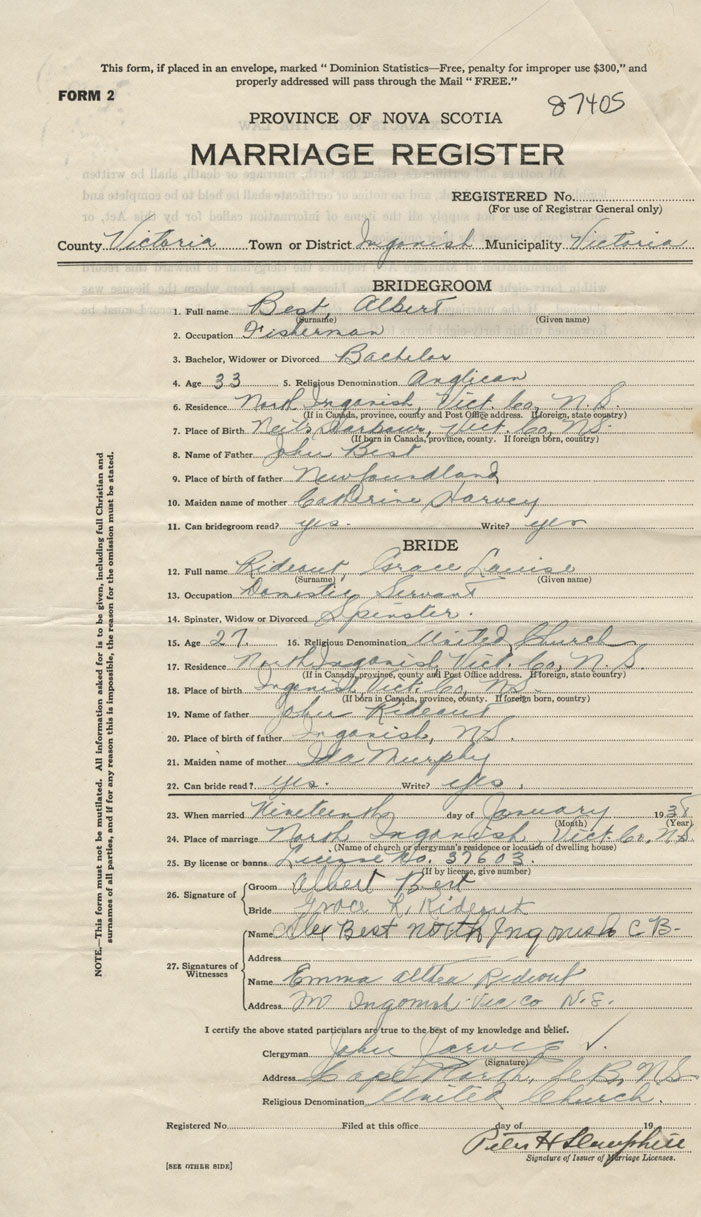 This form, if placed in an envelope, marked " Dominion Statistics—Free, penalty for improper use $300," and
properly addressed will pass through the Mail " FREE."
FORM 2
87405
PROVINCE OF NOVA SCOTIA
MARRIAGE REGISTER
REGISTERED No.
(For use of Registrar General only)
County Victoria Town or District Ingonish Municipality Victoria
BRIDEGROOM
1. Full name Best, Albert
(Surname) (Given name)
2. Occupation Fisherman
3. Bachelor, Widower or Divorced Bachelor
4. Age 33 5. Religious Denomination Anglican
6. Residence North Ingonish, Vict. Co, N.S.
(If in Canada, province, county and Post Office address. If foreign, state country)
7. Place of Birth Neil's Harbour, Vict. Co, N.S.
(If born in Canada, province, county. If foreign born, country)
8. Name of Father John Best
9. Place of birth of father Newfoundland
10. Maiden name of mother Catherine Harvey
11. Can bridegroom read? yes. Write? yes
BRIDE
12. Full name Rideout, Grace Louise
(Surname) (Given name)
13. Occupation Domestic Servant
14. Spinster, Widow or Divorced Spinster.
15. Age 27. 16. Religious Denomination United Church
17. Residence North Ingonish, Vict. Co, N.S.
(If in Canada, province, county and Post Office address. If foreign, state country)
18. Place of birth Ingonish, Vict. Co, N.S.
(If born in Canada, province, county. If foreign born, country)
19. Name of father John Rideout
20. Place of birth of father Ingonish, N.S.
21. Maiden name of mother Ida Murphy
22. Can bride read? yes. Write? yes
23. When married Nineteenth day of January 1938
(Month) (Year)
24. Place of marriage North Ingonish, Vict. Co, N.S.
(Name of church or clergyman's residence or location of dwelling house)
25. By license or banns License No. 37603.
(If by license, give number)
26. Signature of Groom Albert Best
Bride Grace L. Rideout
27. Signatures of Witnesses
Name Alex Best north Ingonish C B-
Address
Name Emma Althea Rideout
Address Ingonish Vic co N.S.
I certify the above stated particulars are true to the best of my knowledge and belief.
Clergyman John Jarvis
(Signature)
Address Cape North, C.B., N.S.
Religious Denomination United Church.
Registered No. Filed at this office day of 19
Peter H
Signature of Issuer of Marriage Licenses.
[SEE OTHER SIDE]
NOTE.—This form must not be mutilated. All information asked for is to be given, including full Christian and
surnames of all parties, and if for any reason this is impossible, the reason for the omission must be stated.